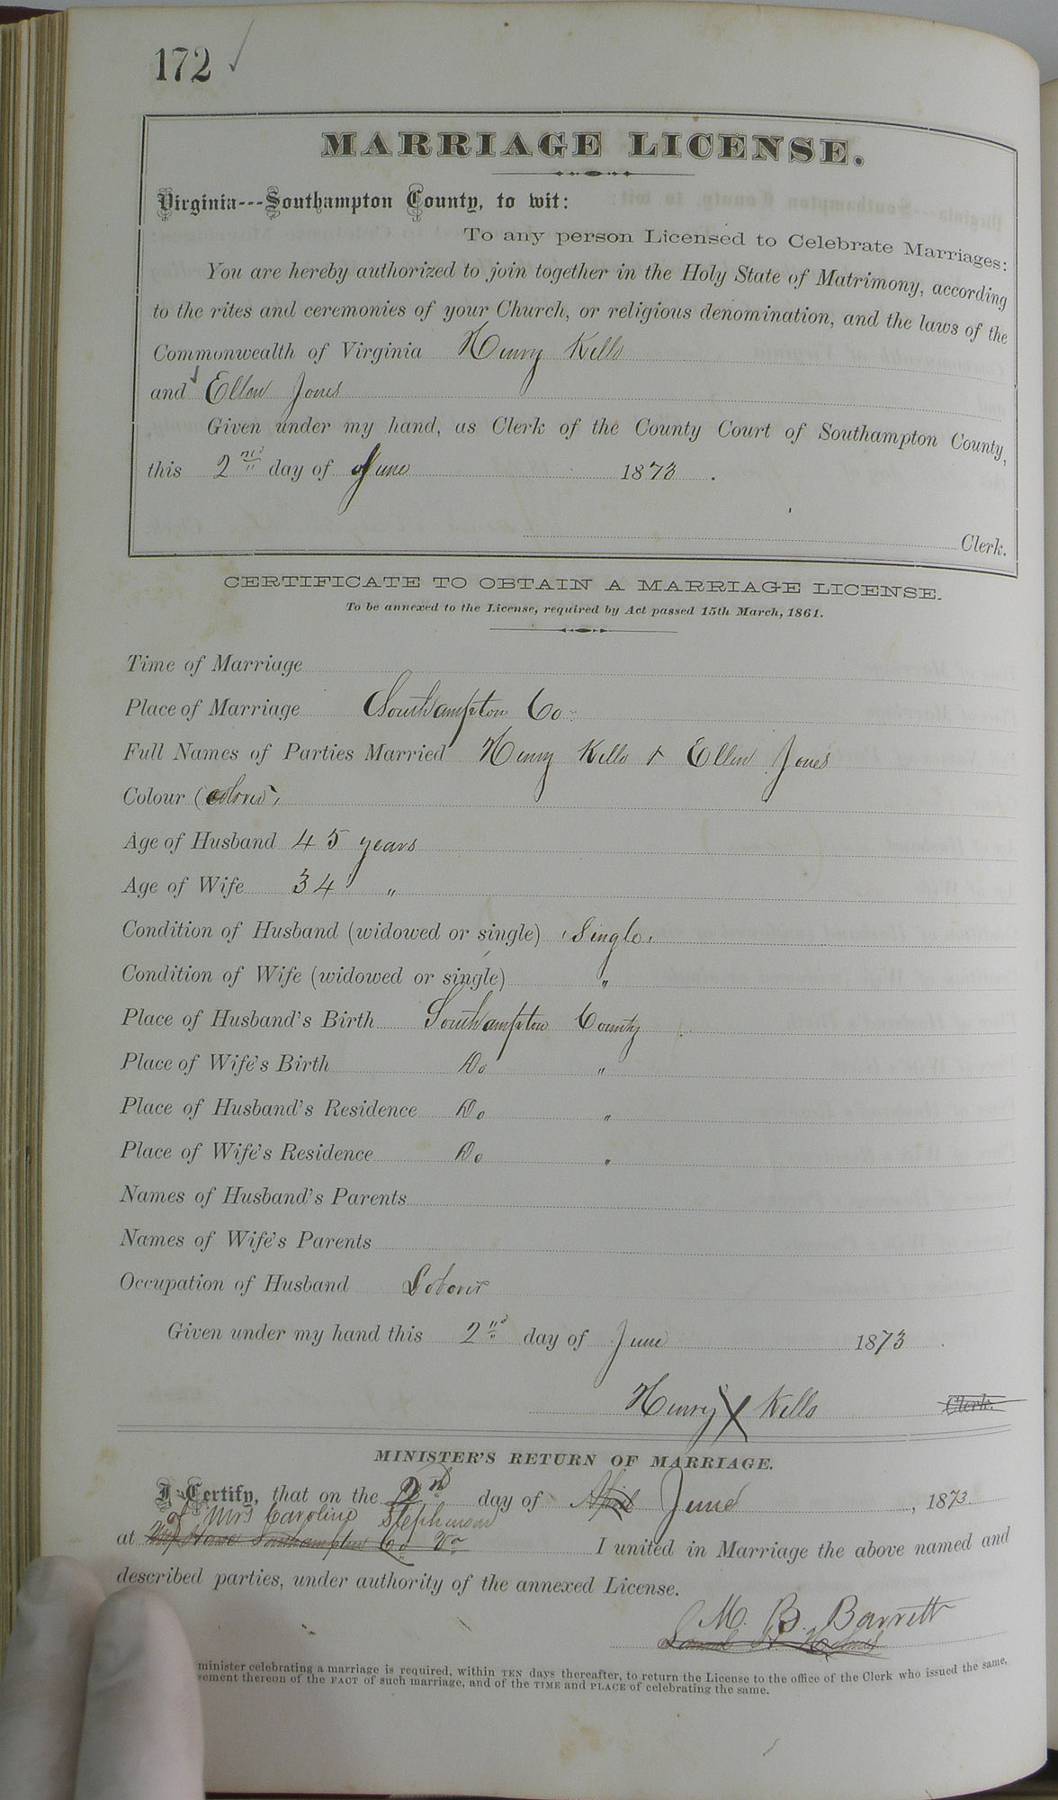 172
MARRIAGE LICENSE.
Virginia---Southampton County, to wit:
To any person Licensed to Celebrate Marriages:
You are hereby authorized to join together in the Holy State of Matrimony, according
to the rites and ceremonies of your Church, or religious denomination, and the laws of the
Commonwealth of Virginia Henry Kello
and Ellen Jones
Given under my hand, as Clerk of the County Court of Southampton County,
this 2nd day of June 1873.
Clerk.
CERTIFICATE TO OBTAIN A MARRIAGE LICENSE.
To be annexed to the License, required by Act passed 15th March, 1861.
Time of Marriage
Place of Marriage Southampton Co
Full Names of Parties Married Henry Kello & Ellen Jones
Colour (colored)
Age of Husband 45 years
Age of Wife 34 "
Condition of Husband (widowed or single) Single
Condition of Wife (widowed or single) "
Place of Husband's Birth Southampton County
Place of Wife's Birth Do "
Place of Husband's Residence Do "
Place of Wife's Residence Do "
Names of Husband's Parents
Names of Wife's Parents
Occupation of Husband Laborer
Given under my hand this 2nd day of June 1873.
Henry X Kello Clerk.
MINISTER'S RETURN OF MARRIAGE.
I Certify, that on the 2nd day of April June, 1873
of Mrs Caroline Stephenson
at House Southampton Co Va I united in Marriage the above named and
described parties, under authority of the annexed License.
M. B. Barrett
minister celebrating a marriage is required, within TEN days thereafter, to return the License to the office of the Clerk who issued the same,
rement thereon of the FACT of such marriage, and of the TIME and PLACE of celebrating the same.